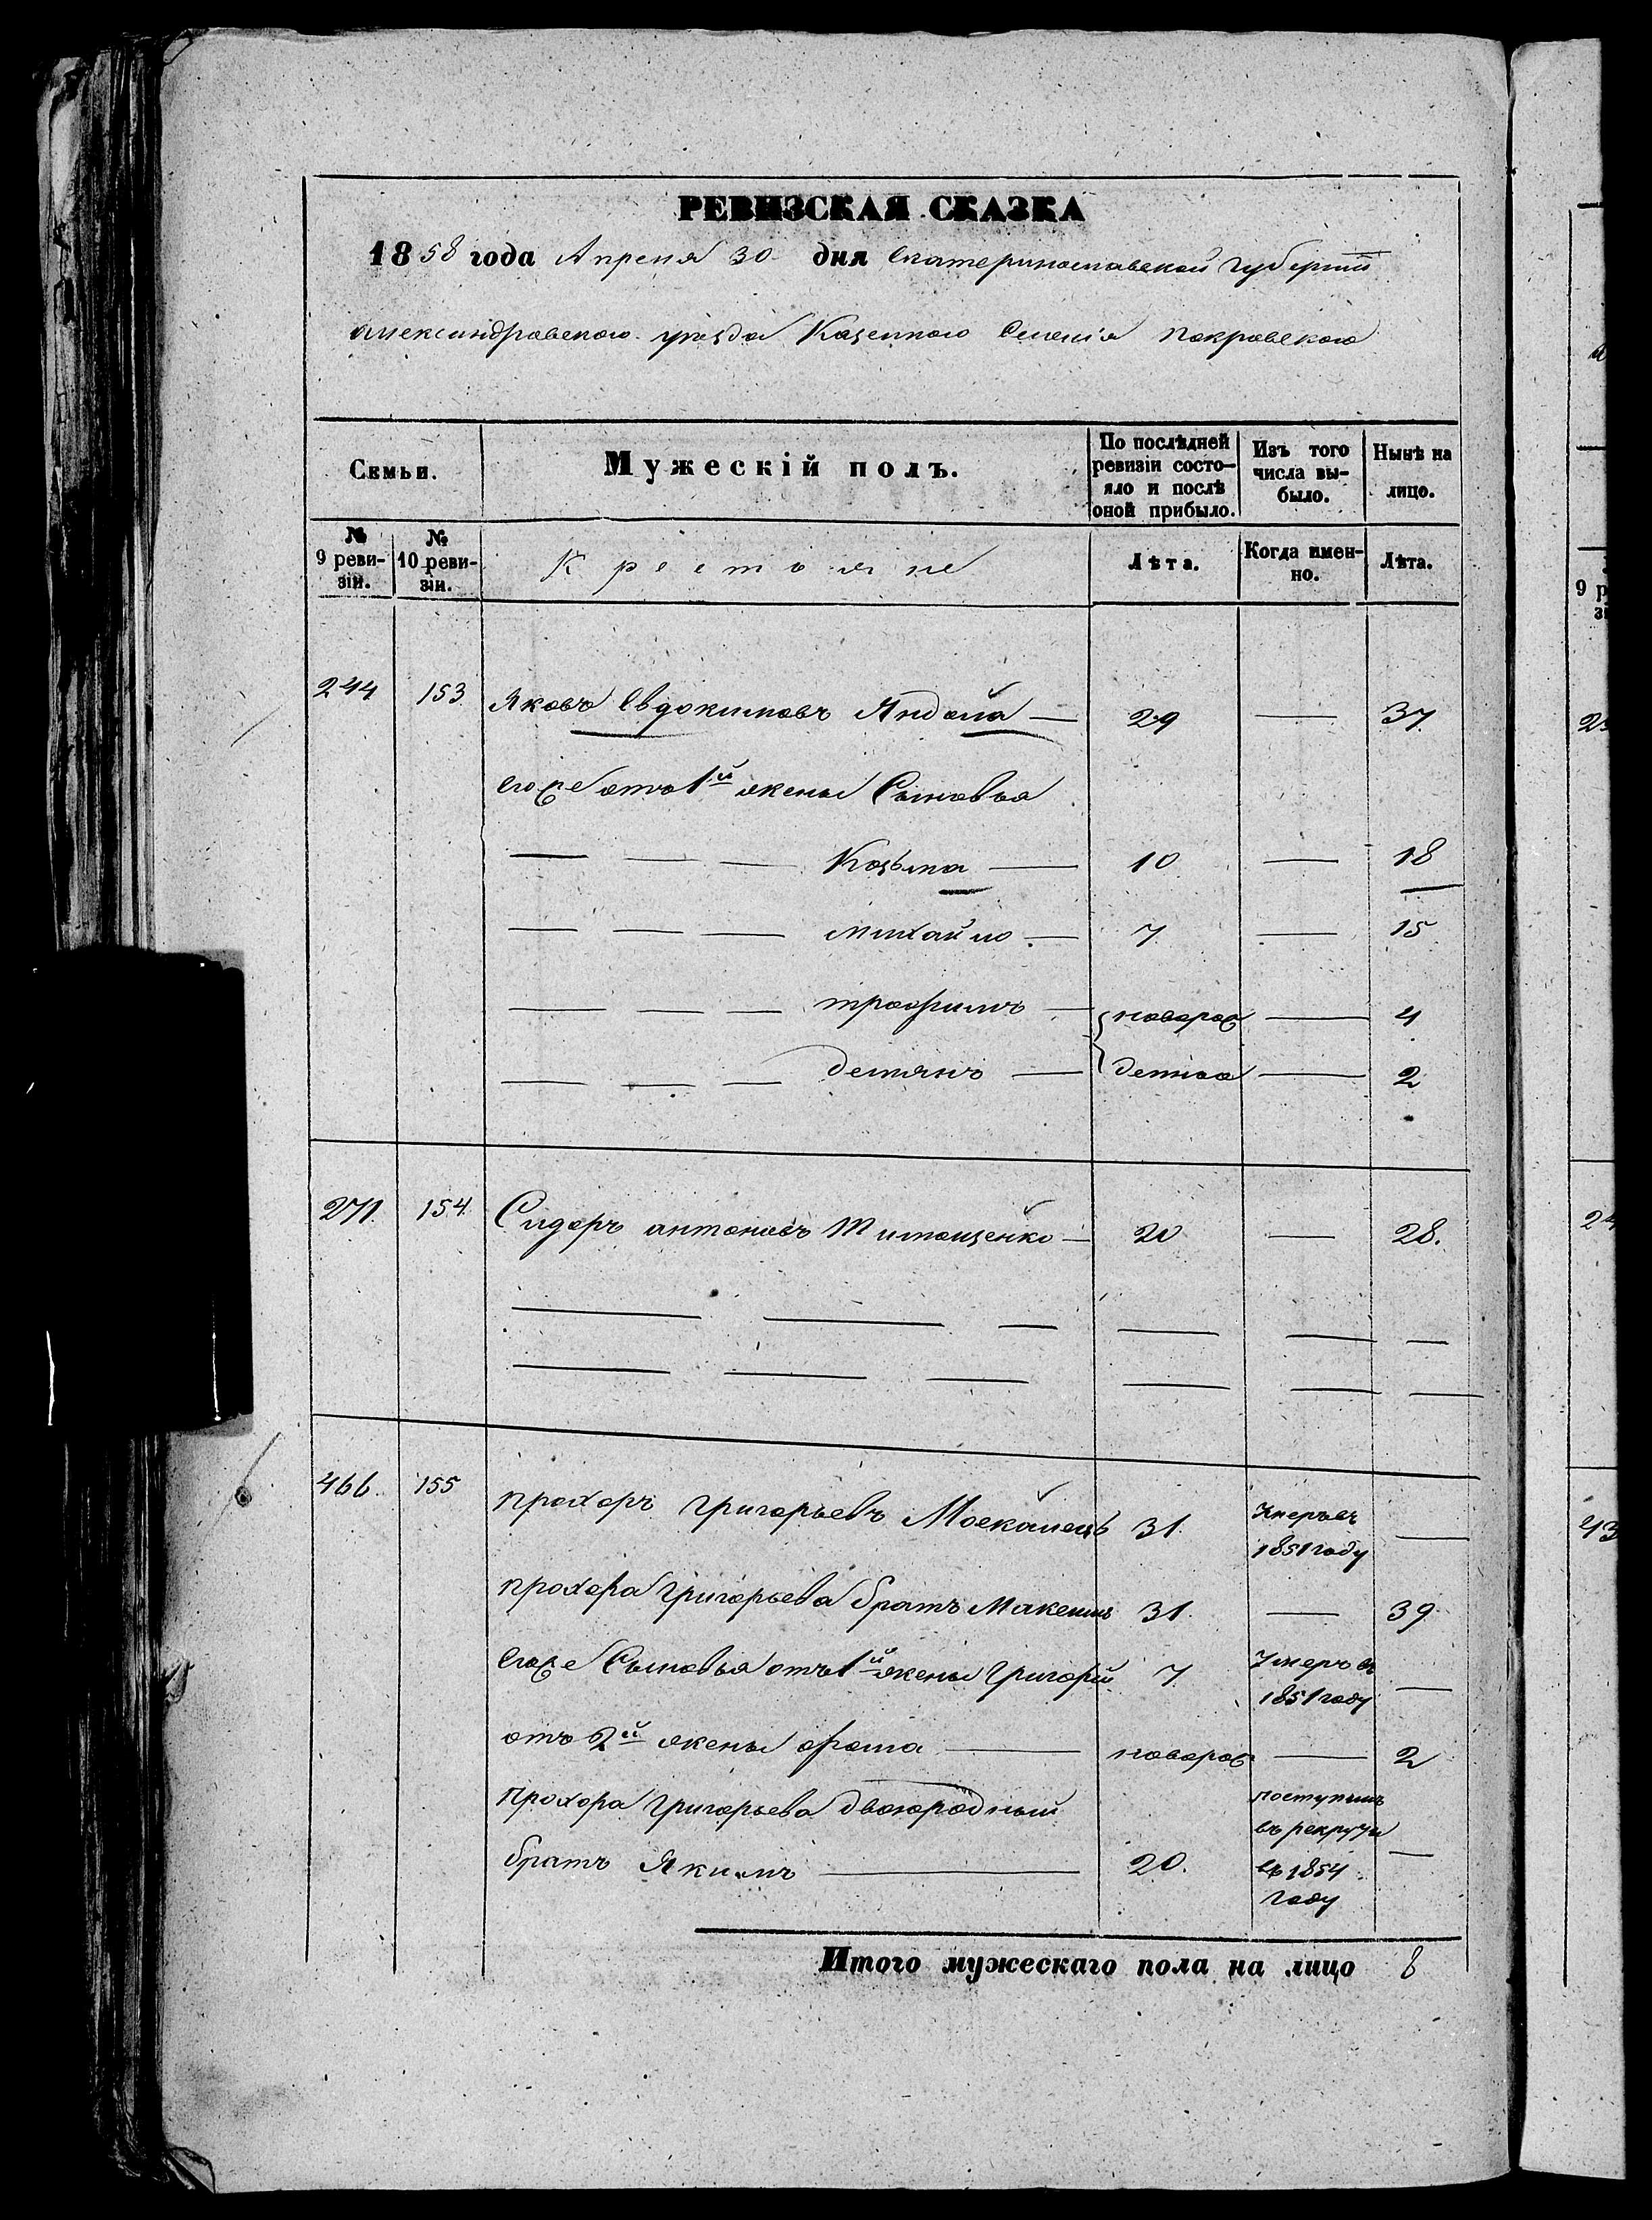 РЕВИЗСКАЯ СКАЗКА
1858 года Апреля 30 дня Екатеринославской губернии
Александровского уезда Казенного Селенія Покровского
Семьи.
Мужескій полъ.
По послѣдней ревизіи состо-яло и послѣ оной прибыло.
Изъ того числа вы-было.
Нынѣ на лицо.
№ 9 реви-зіи.
№ 10 реви-зіи.
Крестьяне
Лѣта.
Когда имен-но.
Лѣта.
244 153 Яковъ Евдокимовъ — 29 — 37.
Егоже отъ 1й жены Сыновья
— — — Козьма — 10 — 18
— — — Михайло — 7 — 15
— — — Трофимъ — новорож — 4
— — — Демянъ — денные — 2
271. 154. Сидоръ Антоновъ Тимощенко — 20 — 28.
— — — — — —
— — — — — —
466. 155 Прохоръ Григорьевъ Москалецъ 31. Умеръ въ 1851 году —
Прохора Григорьева братъ Максимъ 31. — 39
Егоже Сыновья отъ 1й жены Григорій 7 Умеръ въ 1851 году —
отъ 2й жены Фома — новорож — 2
Прохора Григорьева двоюродный
братъ Якимъ — 20. поступилъ въ рекруты въ 1854 году —
Итого мужескаго пола на лицо 8
9 р
зі